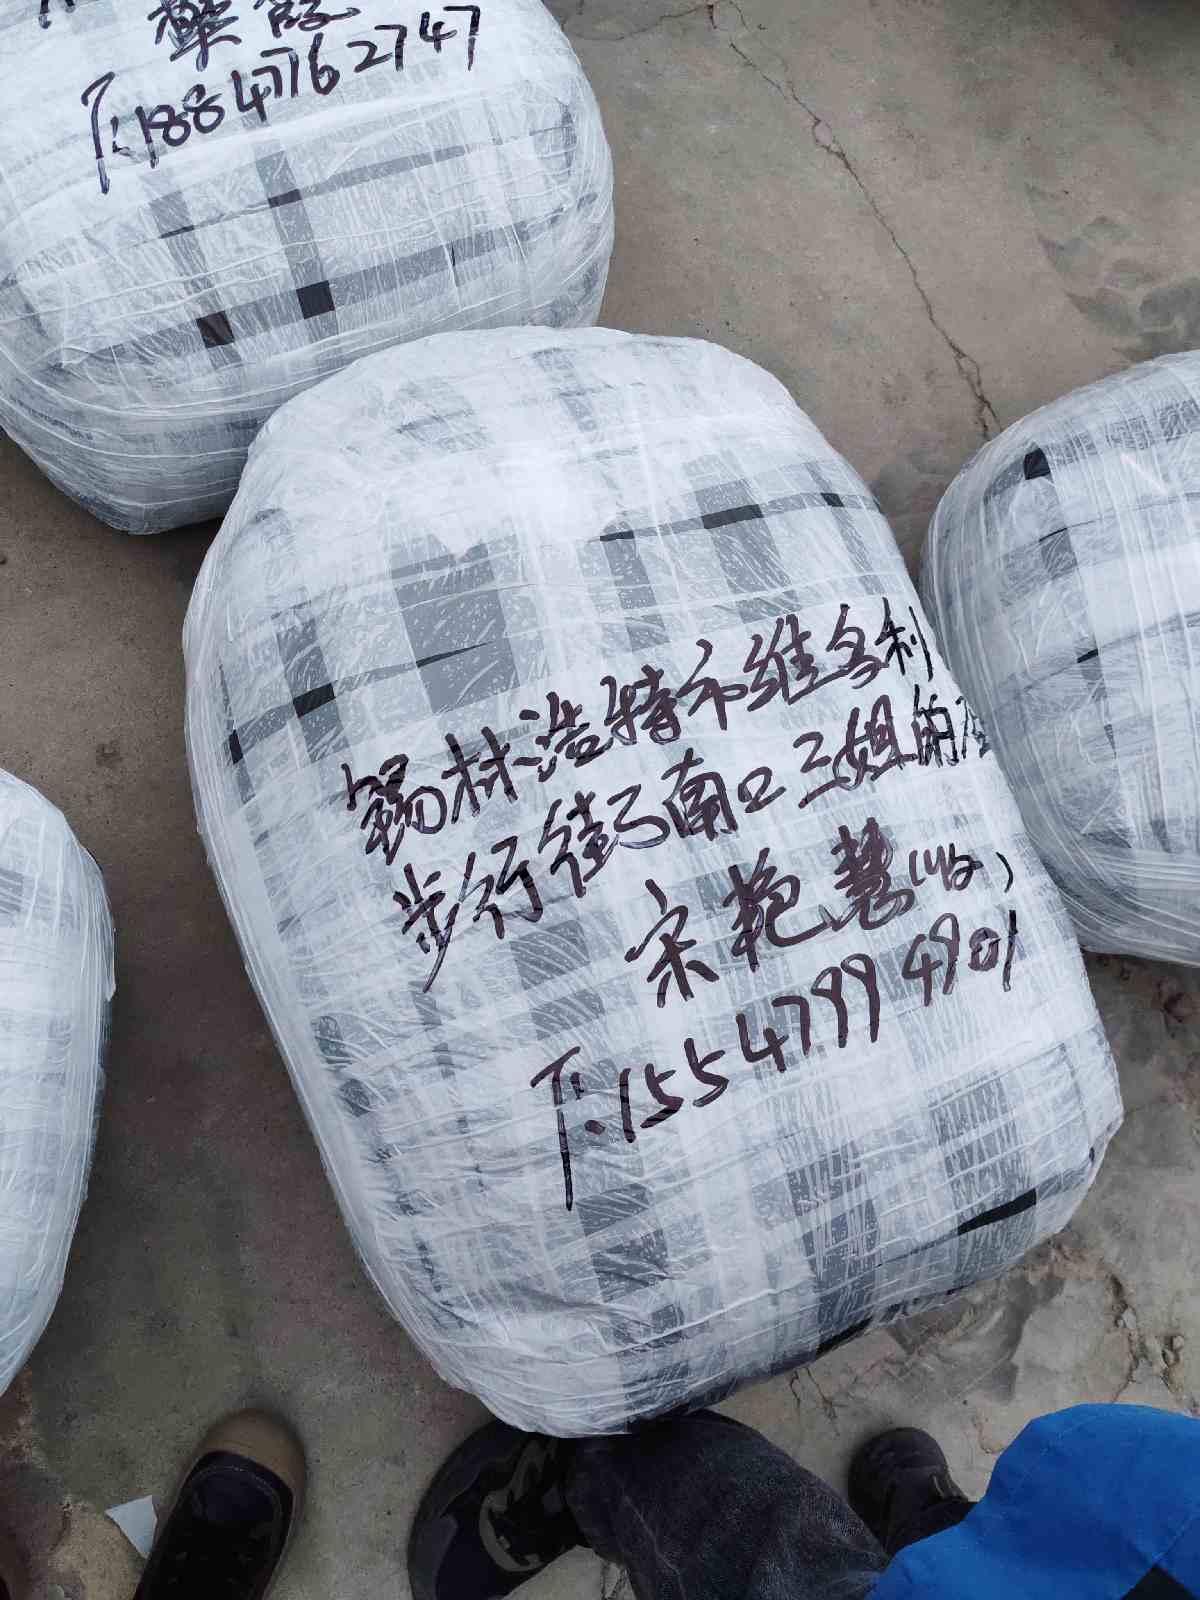 T:18847762747
锡林浩特市维多利
步行街南口三姐的店
宋艳慧(收)
T:15547994901